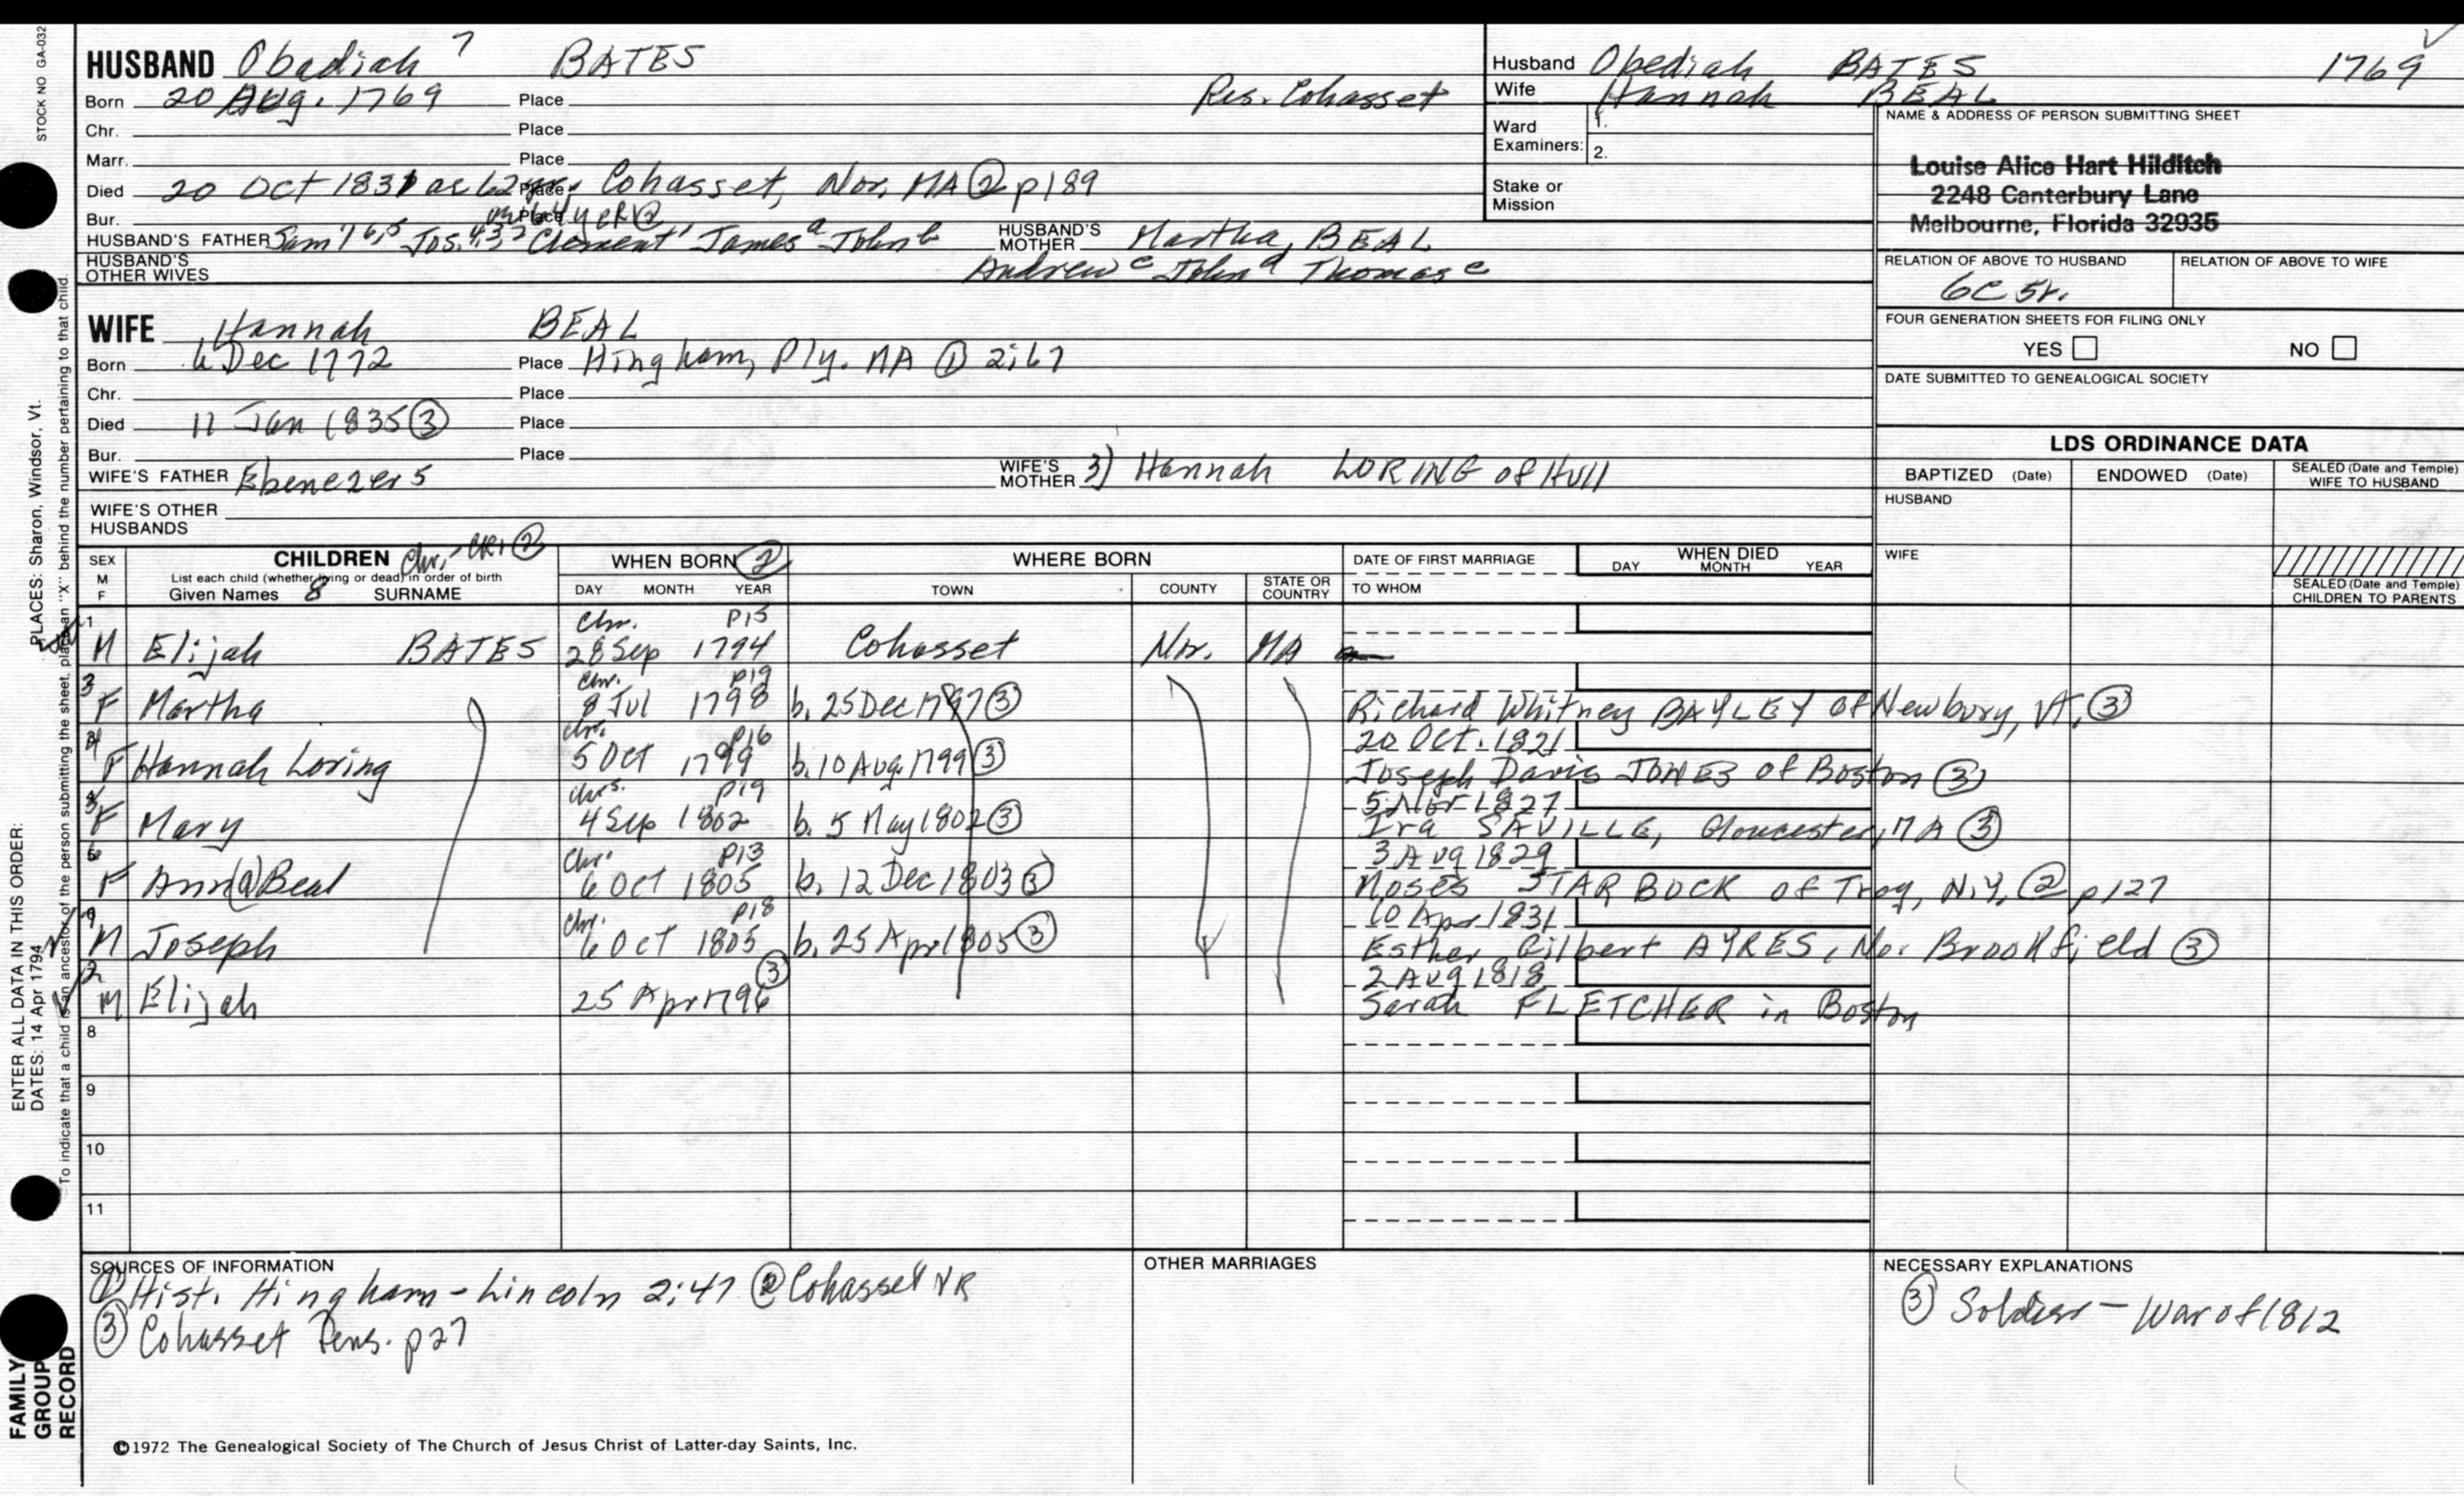 STOCK NO GA-032
HUSBAND Obadiah 7 BATES
Born 20 Aug. 1769 Place Res. Cohasset
Chr. Place
Marr. Place
Died 20 Oct 1831 ae 62 Place Cohasset, Nor, MA ② p189
Bur. Place
HUSBAND'S FATHER Sam'l 6,5 Jos. 4,3,2 Clement 1 James a John b HUSBAND'S MOTHER Martha, BEAL
HUSBAND'S OTHER WIVES Andrew c John d Thomas e
Husband Obediah BATES 1769
Wife Hannah BEAL
Ward Examiners: 1.
2.
Stake or Mission
NAME & ADDRESS OF PERSON SUBMITTING SHEET
Louise Alice Hart Hilditch
2248 Canterbury Lane
Melbourne, Florida 32935
RELATION OF ABOVE TO HUSBAND RELATION OF ABOVE TO WIFE
6C 5r.
FOUR GENERATION SHEETS FOR FILING ONLY
YES NO
DATE SUBMITTED TO GENEALOGICAL SOCIETY
WIFE Hannah BEAL
Born 6 Dec 1772 Place Hingham, Ply. MA ① 2:67
Chr. Place
Died 11 Jan 1835 ③ Place
Bur. Place
WIFE'S FATHER Ebenezer 5 WIFE'S MOTHER 3) Hannah LORING of Hull
WIFE'S OTHER HUSBANDS
LDS ORDINANCE DATA
BAPTIZED (Date) ENDOWED (Date) SEALED (Date and Temple) WIFE TO HUSBAND
HUSBAND
WIFE
SEALED (Date and Temple) CHILDREN TO PARENTS
SEX M F CHILDREN Chr, CR1 ②
List each child (whether living or dead) in order of birth
Given Names 8 SURNAME
WHEN BORN ② DAY MONTH YEAR
WHERE BORN TOWN COUNTY STATE OR COUNTRY
DATE OF FIRST MARRIAGE TO WHOM
WHEN DIED DAY MONTH YEAR
1 Chr. p15
M Elijah BATES 28 Sep 1794 Cohasset Nor. MA
3 Chr. p19
F Martha 8 Jul 1798 b. 25 Dec 1797 ③ Richard Whitney BAYLEY of Newbury, Vt. ③
4 Chr. p16 20 Oct. 1821
F Hannah Loring 5 Oct 1799 b. 10 Aug. 1799 ③ Joseph Davis JONES of Boston ③
5 Chrs. p19 5 Apr 1827
F Mary 4 Sep 1802 b. 5 May 1802 ③ Ira SAVILLE, Gloucester, MA ③
6 Chr. p13 3 Aug 1829
F Ann(a) Beal 6 Oct 1805 b. 12 Dec 1803 ③ Moses STARBUCK of Troy, N.Y. ② p127
Chr. p18 10 Apr 1831
M Joseph 6 Oct 1805 b. 25 Apr 1805 ③ Esther Gilbert AYRES, No. Brookfield ③
2 ③ 2 Aug 1818
M Elijah 25 Apr 1796 Sarah FLETCHER in Boston
8
9
10
11
SOURCES OF INFORMATION
① Hist. Hingham - Lincoln 2:47 ② Cohasset VR
③ Cohasset Gens. p27
OTHER MARRIAGES
NECESSARY EXPLANATIONS
③ Soldier - War of 1812
ENTER ALL DATA IN THIS ORDER:
DATES: 14 Apr 1794 PLACES: Sharon, Windsor, Vt.
To indicate that a child is an ancestor of the person submitting the sheet, place an "X" behind the number pertaining to that child.
FAMILY GROUP RECORD
©1972 The Genealogical Society of The Church of Jesus Christ of Latter-day Saints, Inc.